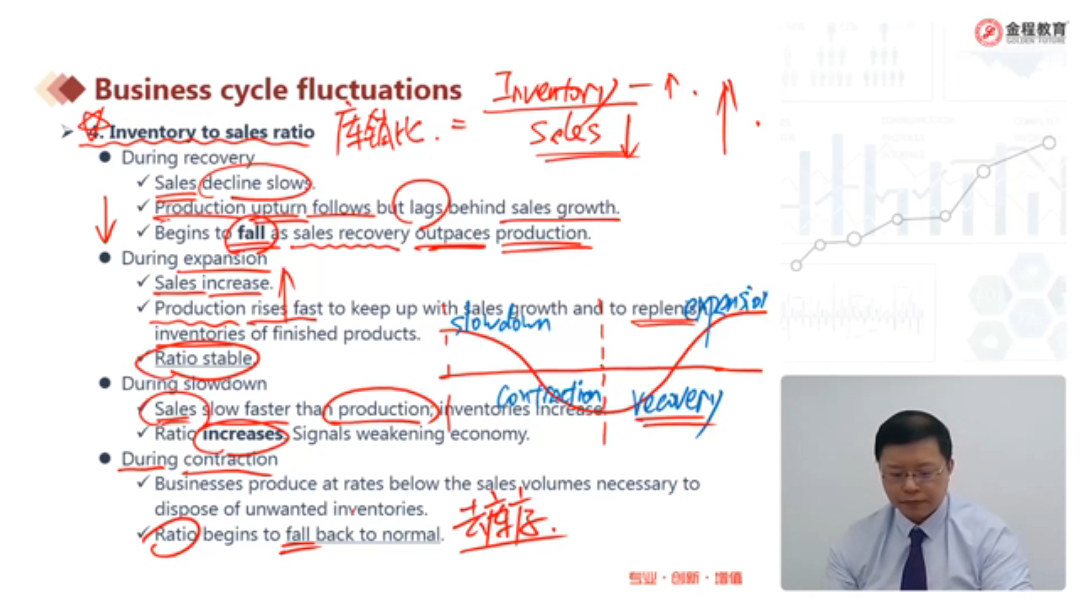 金程教育
GOLDEN FUTURE
Business cycle fluctuations
Inventory
sales
库销比 =
4. Inventory to sales ratio
During recovery
Sales decline slows.
Production upturn follows but lags behind sales growth.
Begins to fall as sales recovery outpaces production.
During expansion
Sales increase.
Production rises fast to keep up with sales growth and to replenish
inventories of finished products.
Ratio stable.
slowdown
expansion
contraction
recovery
During slowdown
Sales slow faster than production; inventories increase.
Ratio increases. Signals weakening economy.
During contraction
Businesses produce at rates below the sales volumes necessary to
dispose of unwanted inventories.
Ratio begins to fall back to normal.
去库存.
专业·创新·增值